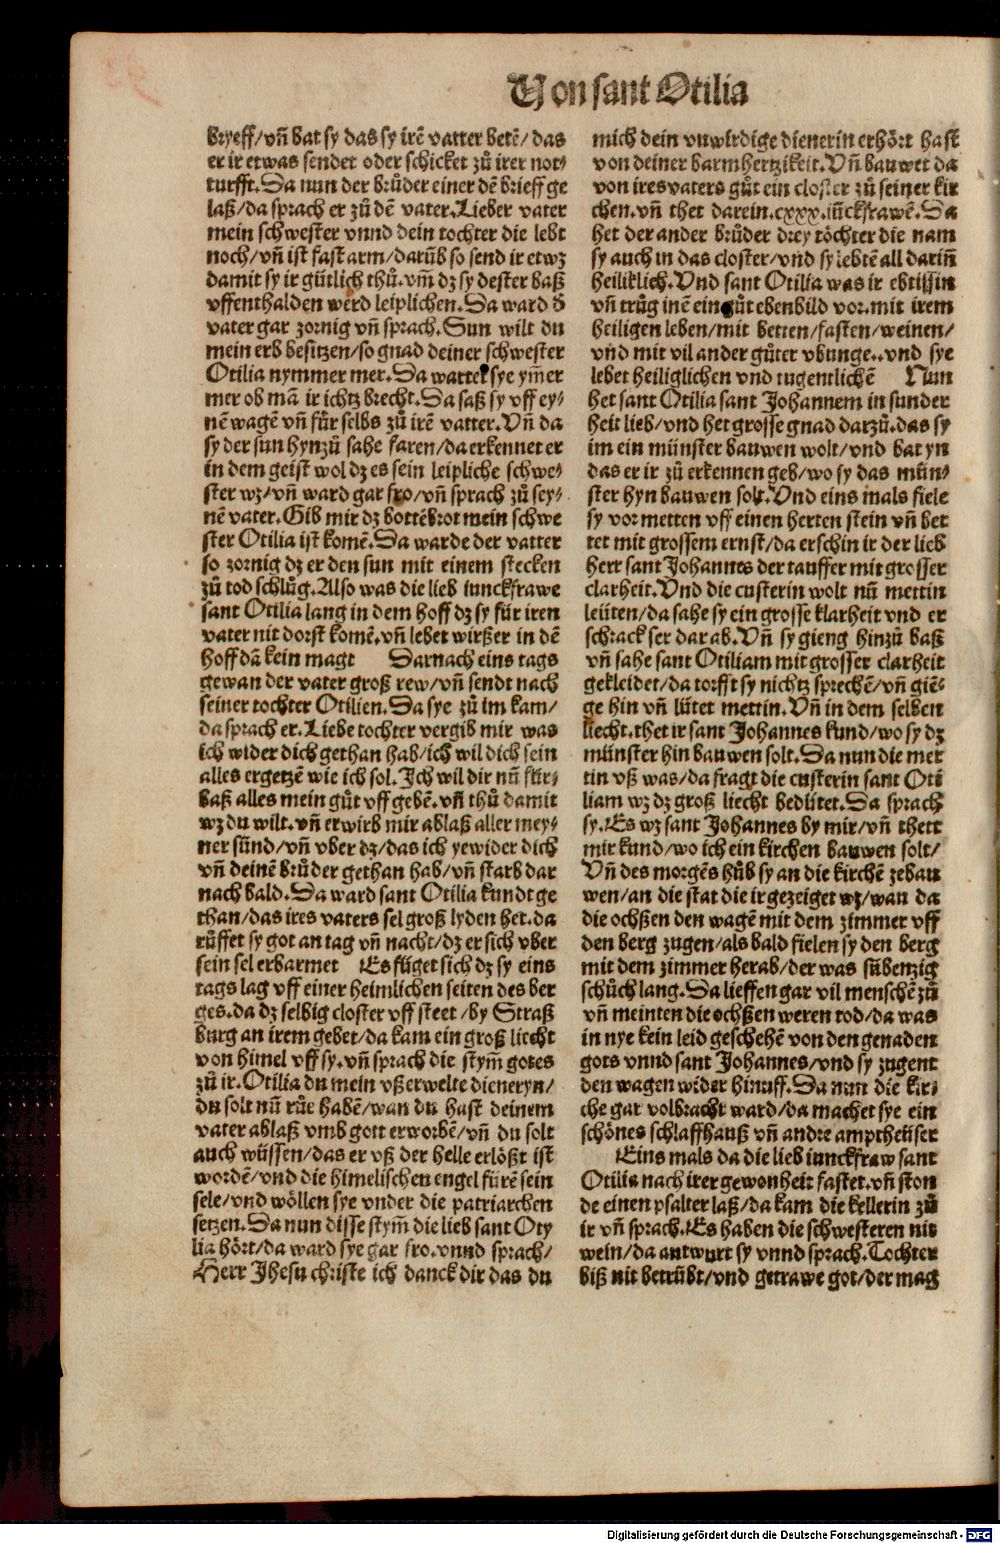 Von sant Otilia
bryeff/vn̄ bat sy das sy irē vatter betē/das
er ir etwas sendet oder schicket zů irer not⸗
turfft. Da nun der brůder einer dē brieff ge
laß/da sprach er zů dē vater. Lieber vater
mein schwester vnnd dein tochter die lebt
noch/vn̄ ist fast arm/darūb so send ir etwz
damit sy ir gůtlich thů. vm̄ dz sy dester baß
vffenthalden werd leiplichen. Da ward d̄
vater gar zornig vn̄ sprach. Sun wilt du
mein erb besitzen/so gnad deiner schwester
Otilia nymmer mer. Da wattet sye ym̄er
mer ob mā ir ichtz brecht. Da saß sy vff ey⸗
nē wagē vn̄ fůr selbs zů irē vatter. Vn̄ da
sy der sun hynzů sahe faren/da erkennet er
in dem geist wol dz es sein leipliche schwe⸗
ster wz/vn̄ ward gar fro/vn̄ sprach zů sey⸗
nē vater. Gib mir dz bottēbrot mein schwe
ster Otilia ist komē. Da warde der vatter
so zornig dz er den sun mit einem stecken
zů tod schlůg. Also was die lieb iunckfrawe
sant Otilia lang in dem hoff dz sy für iren
vater nit dorst komē. vn̄ lebet wirßer in dē
hoff dā kein magt Darnach eins tags
gewan der vater groß rew/vn̄ sendt nach
seiner tochter Otilien. Da sye zů im kam/
da sprach er. Liebe tochter vergib mir was
ich wider dich gethan hab/ich wil dich sein
alles ergetzē wie ich sol. Ich wil dir nū für⸗
baß alles mein gůt vff gebē. vn̄ thů damit
wz du wilt. vn̄ erwirb mir ablaß aller mey⸗
ner sünd/vn̄ vber dz/das ich ye wider dich
vn̄ deinē brůder gethan hab/vn̄ starb dar
nach bald. Da ward sant Otilia kundt ge
than/das ires vaters sel groß lyden het. da
růffet sy got an tag vn̄ nacht/dz er sich vber
sein sel erbarmet Es füget sich dz sy eins
tags lag vff einer heimlichen seiten des ber
ges. da dz selbig closter vff steet/by Straß
burg an irem gebet/da kam ein groß liecht
von himel vff sy. vn̄ sprach die stym̄ gotes
zů ir. Otilia du mein vßerwelte dieneryn/
du solt nū růe habē/wan du hast deinem
vater ablaß vmb gott erworbē/vn̄ du solt
auch wüssen/das er vß der helle erlößt ist
wordē/vnd die himelischen engel fürē sein
sele/vnd wöllen sye vnder die patriarchen
setzen. Da nun disse stym̄ die lieb sant Oty
lia hört/da ward sye gar fro. vnnd sprach/
Herr Jhesu christe ich danck dir das du
mich dein vnwirdige dienerin erhört hast
von deiner barmhertzikeit. Vn̄ bauwet da
von ires vaters gůt ein closter zů seiner kir
chen. vn̄ thet darein. cxxx. iūckfrawē. Da
het der ander brůder drey töchter die nam
sy auch in das closter/vnd sy lebtē all darin̄
heiliklich. Vnd sant Otilia was ir ebtissin
vn̄ trůg inē ein gůt ebenbild vor. mit irem
heiligen leben/mit betten/fasten/weinen/
vnd mit vil ander gůter vbunge.. vnd sye
lebet heiliglichen vnd tugentlichē Nun
het sant Otilia sant Johannem in sunder
heit lieb/vnd het grosse gnad darzů. das sy
im ein münster bauwen wolt/vnd bat yn
das er ir zů erkennen geb/wo sy das mün⸗
ster hyn bauwen solt. Vnd eins mals fiele
sy vor metten vff einen herten stein vn̄ bet
tet mit grossem ernst/da erschin ir der lieb
herr sant Johannes der tauffer mit grosser
clarheit. Vnd die custerin wolt nū mettin
leüten/da sahe sy ein grosse klarheit vnd er
schrack ser dar ab. Vn̄ sy gieng hinzů baß
vn̄ sahe sant Otiliam mit grosser clarheit
gekleidet/da torfft sy nichtz sprechē/vn̄ giē⸗
ge hin vn̄ lütet mettin. Vn̄ in dem selben
liecht. thet ir sant Johannes kund/wo sy dz
münster hin bauwen solt. Da nun die met
tin vß was/da fragt die custerin sant Oti
liam wz dz groß liecht bedütet. Da sprach
sy. Es wz sant Johannes by mir/vn̄ thett
mir kund/wo ich ein kirchen bauwen solt/
Vn̄ des morgēs hůb sy an die kirchē ze bau
wen/an die stat die ir gezeiget wz/wan da
die ochßen den wagē mit dem zimmer vff
den berg zugen/als bald fielen sy den berg
mit dem zimmer herab/der was sübenzig
schůch lang. Da lieffen gar vil menschē zů
vn̄ meinten die ochßen weren tod/da was
in nye kein leid geschehē von den genaden
gots vnnd sant Johannes/vnd sy zugent
den wagen wider hinuff. Da nun die kir⸗
che gar volbracht ward/da machet sye ein
schönes schlaffhauß vn̄ andre amptheüser
Eins mals da die lieb iunckfraw sant
Otilia nach irer gewonheit fastet. vn̄ ston
de einen psalter laß/da kam die kellerin zů
ir vn̄ sprach. Es haben die schwesteren nit
wein/da antwurt sy vnnd sprach. Tochter
biß nit betrübt/vnd getrawe got/der mag
Digitalisierung gefördert durch die Deutsche Forschungsgemeinschaft - DFG